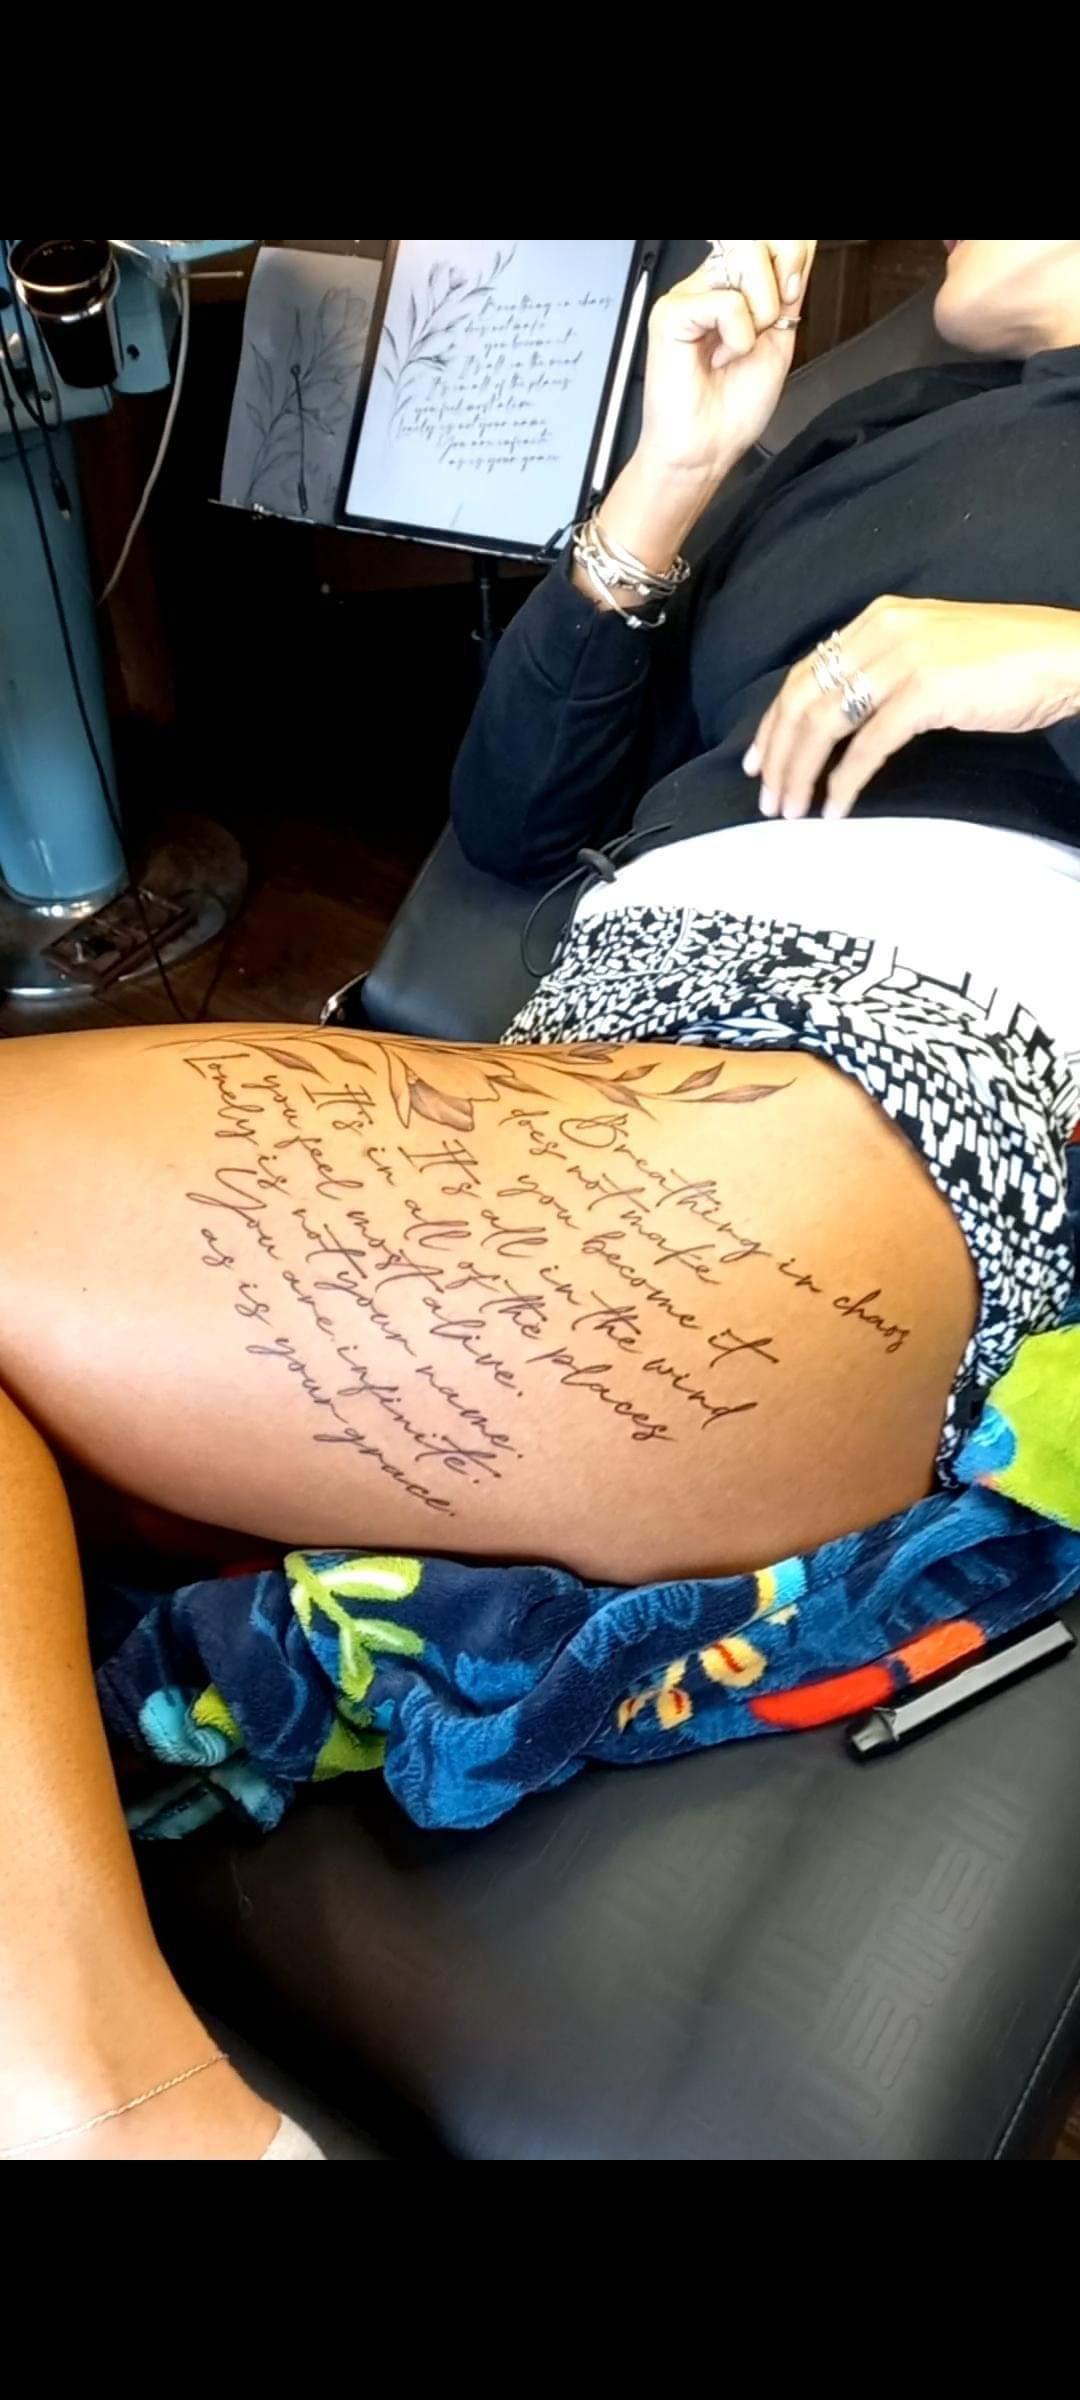 Breathing in chaos
does not make
you become it
It's all in the wind
It's in all of the places
you feel most alive.
Lonely is not your name.
You are infinite.
as is your grace.
Breathing in chaos
does not make
you become it
It's all in the wind
It's in all of the places
you feel most alive.
Lonely is not your name.
You are infinite.
as is your grace.